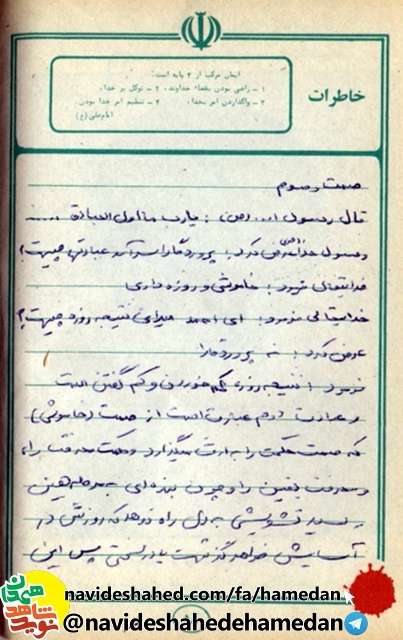 خاطرات
ایمان مرکب از ۴ پایه است:
۱ـ راضی بودن بقضاء خداوند، ۲ـ توکل بر خدا،
۳ـ واگذاردن امر بخدا، ۴ـ تسلیم امر خدا بودن
امام علی (ع)
صمت و صوم
قال رسول ا... (ص) : یا رب ما اول العبادة ....
رسول خدا (ص) عرض کرد : پروردگارا سرآمد عبادتها چیست؟
خدایتعالی فرمود : خاموشی و روزه داری
خدایتعالی فرمود : ای احمد میدانی نتیجه روزه چیست؟
عرض کرد : نه پروردگارا
فرمود : نتیجه روزه کم خوردن و کم گفتن است
و عبادت دوم عبارت است از صمت (خاموشی)
که صمت حکمت را به ارث میگذارد و حکمت معرفت را
و معرفت یقین را و چون بنده ای به مرحله یقین
رسید تشویشی به دل راه ندهد که روزش در
آسایش خواهد گذشت یا در سختی پس این
navideshahed.com/fa/hamedan
@navideshahedehamedan
نوید شاهد
همدان